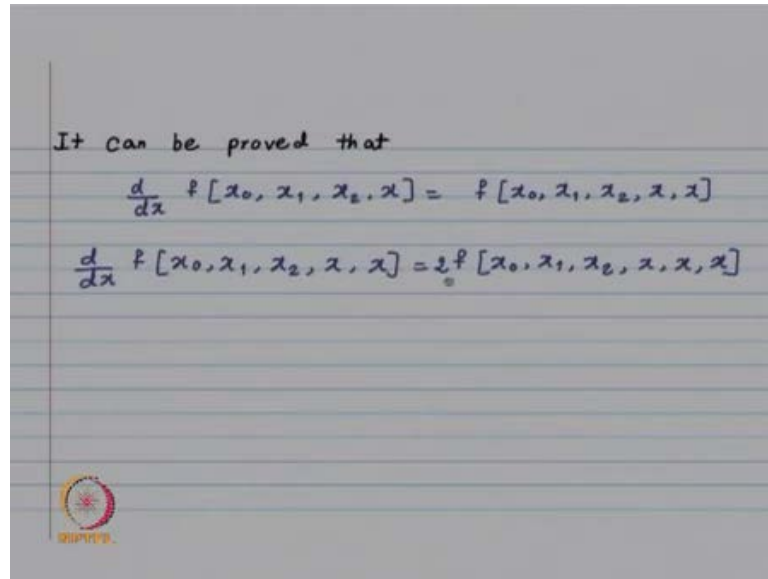 It can be proved that
d/dx f [x₀, x₁, x₂, x] = f [x₀, x₁, x₂, x, x]
d/dx f [x₀, x₁, x₂, x, x] = 2 f [x₀, x₁, x₂, x, x, x]
NPTEL